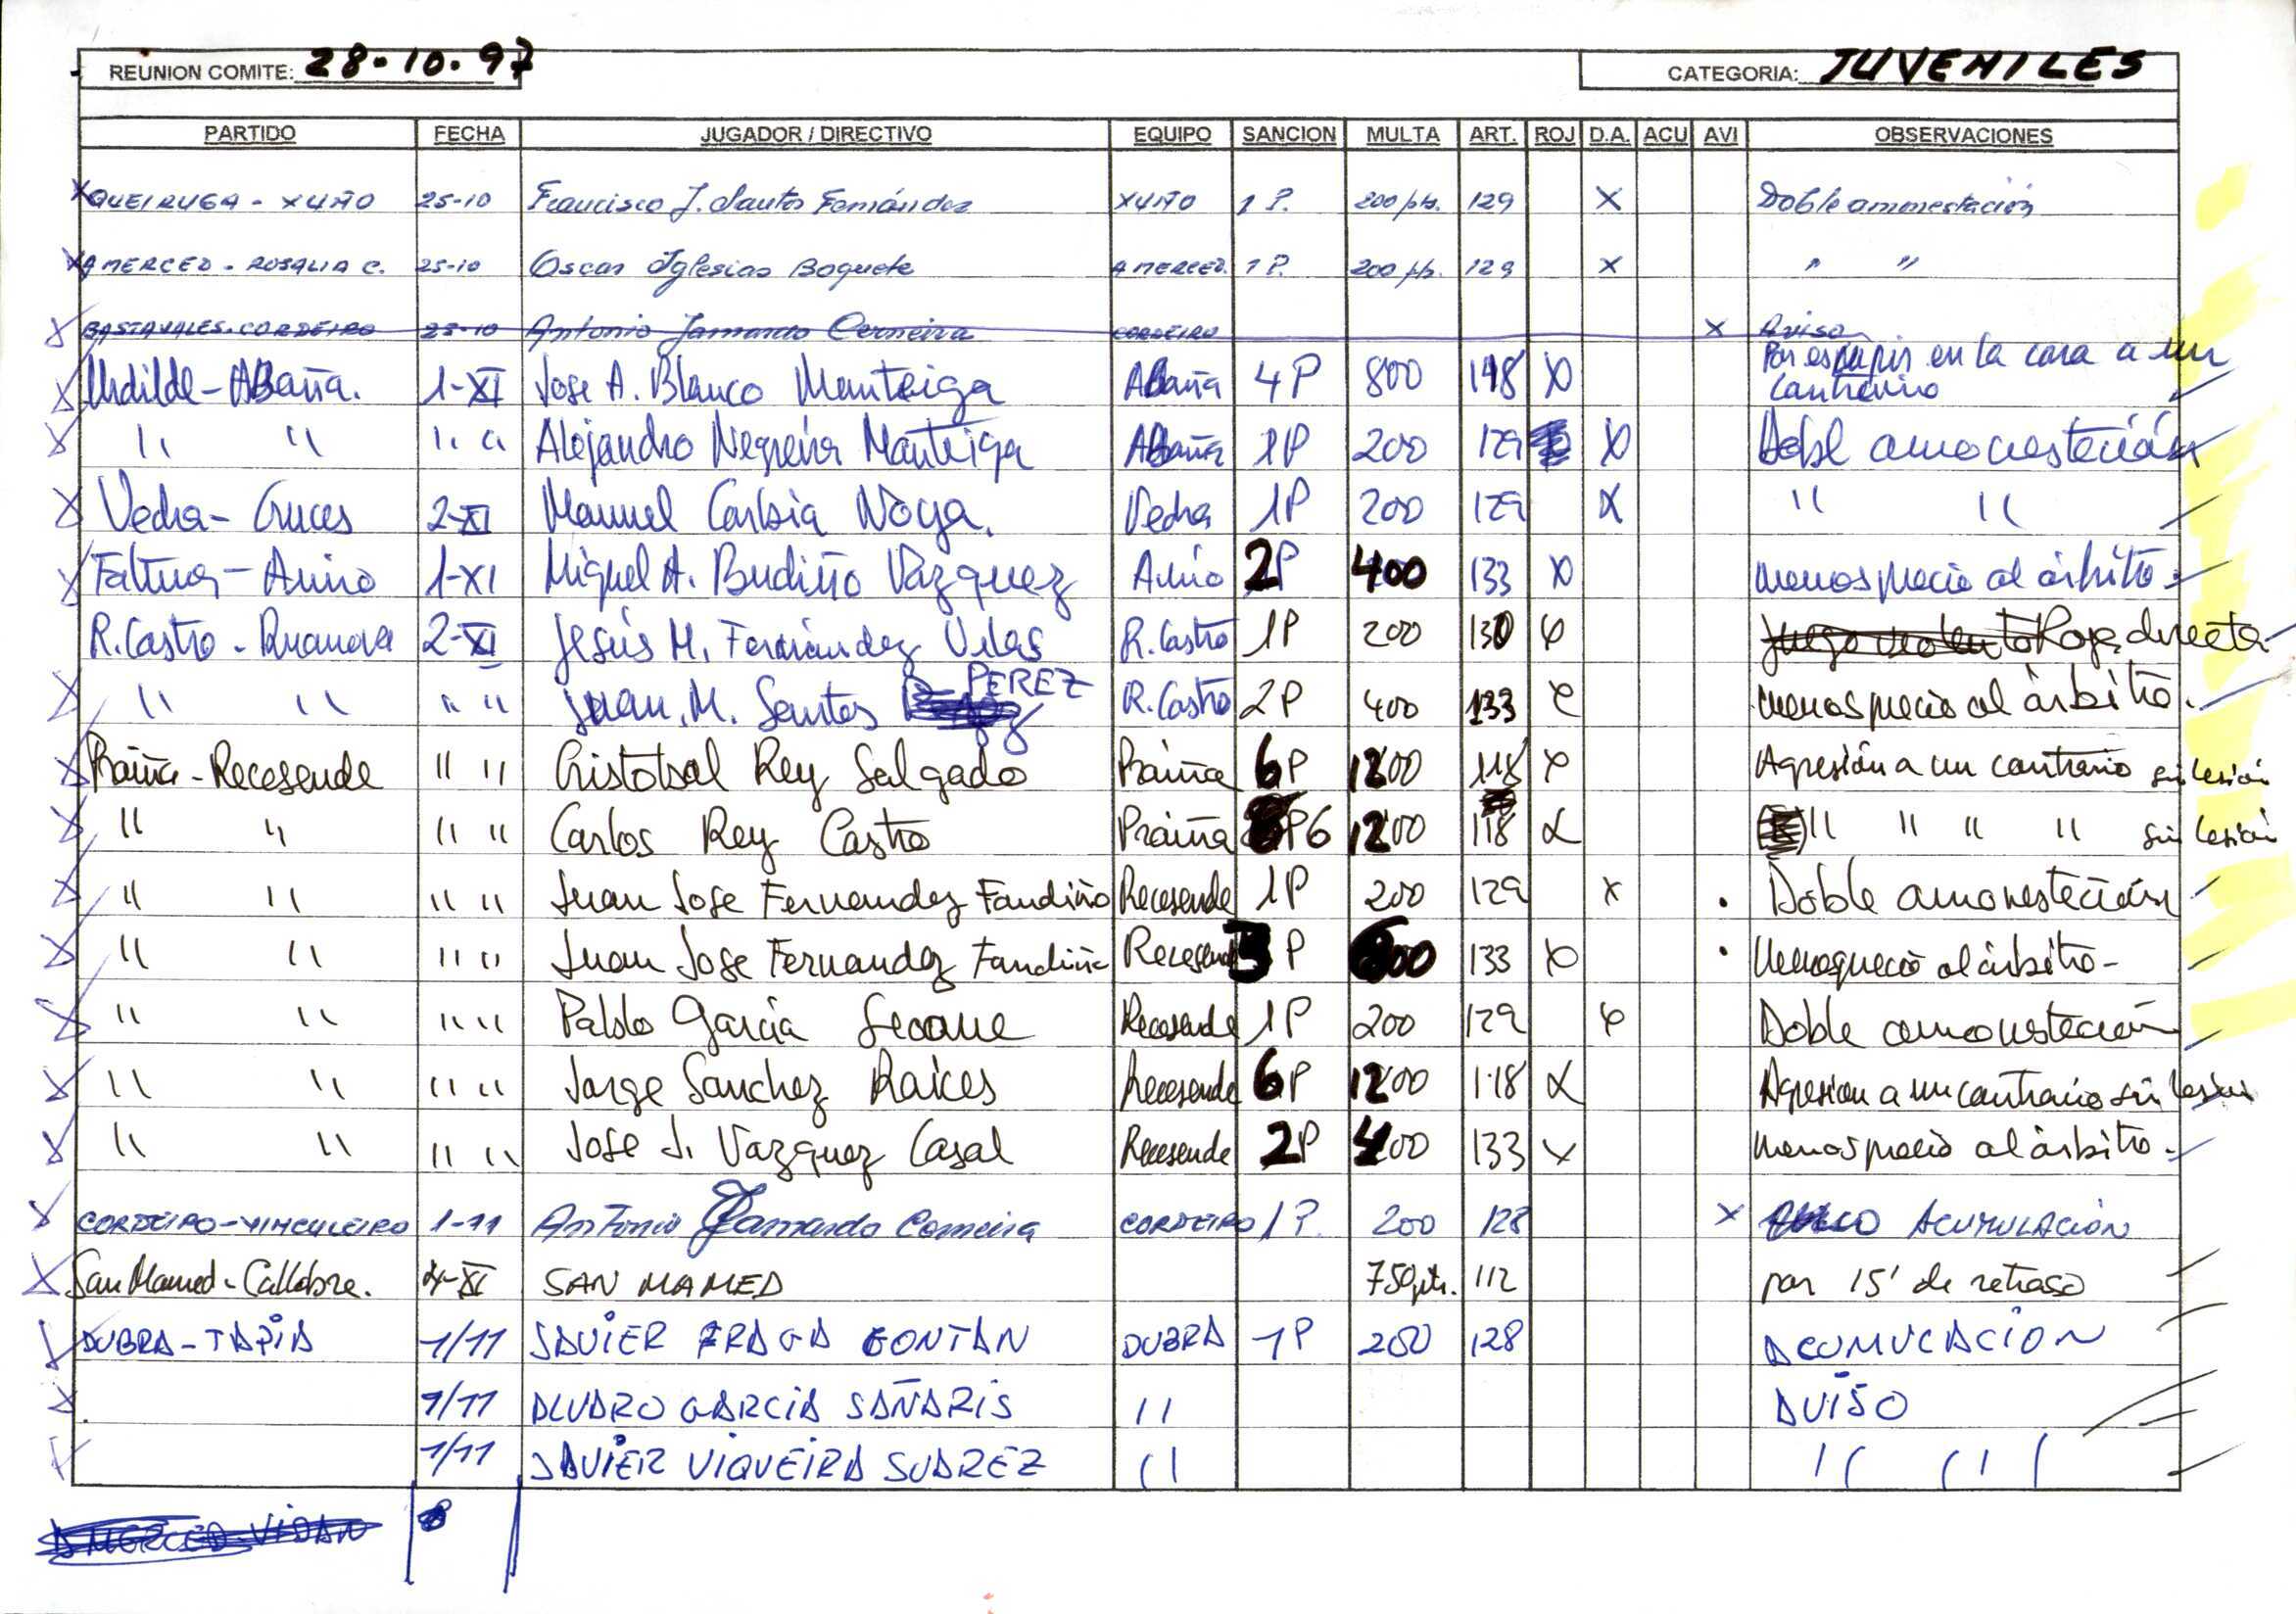 REUNION COMITE: 28-10-97 CATEGORIA: JUVENILES
PARTIDO FECHA JUGADOR / DIRECTIVO EQUIPO SANCION MULTA ART. ROJ D.A. ACU AVI OBSERVACIONES
X QUEIRUGA - XUÑO 25-10 Francisco J. Santos Fernández XUÑO 1 P. 200 pts. 129 X Doble amonestación
X A MERCED - ROSALIA C. 25-10 Oscar Iglesias Boquete A MERCED. 1 P. 200 pts. 129 X " "
X BASTAVALES - CORDEIRO 25-10 Antonio Jamardo Cerneira CORDEIRO X Aviso
Por escupir en la cara a un
X - ABaña. 1-XI Jose A. Blanco Manteiga ABaña 4P 800 118 X contrario
X " " " " Alejandro Negreira Manteiga ABaña 1P 200 129 X Dobl amonestación
X Vedra - Cruces 2-XI Manuel Noya. Vedra 1P 200 129 X " "
X - 1-XI Miguel A. Budiño Vázquez 2P 400 133 X menosprecio al árbitro
R. Castro - Ruanova 2-XI Jesús M. Fernández Vilas R. Castro 1P 200 130 X Roja directa
X " " " " Juan. M. Santos PEREZ R. Castro 2P 400 133 X menosprecio al árbitro.
X - Recesende " " Cristobal Rey Salgado 6P 1200 118 X Agresión a un contrario sin lesión
X " " " " Carlos Rey Castro P6 1200 118 X " " " " sin lesión
X " " " " Juan Jose Fernandez Fandiño Recesende 1P 200 129 X . Doble amonestación
X " " " " Juan Jose Fernandez Fandiño Recesende 3P 600 133 X . Menosprecio al árbitro -
X " " " " Pablo García Seoane Recesende 1P 200 129 X Doble amonestación
X " " " " Jorge Sanchez Raices Recesende 6P 1200 118 X Agresion a un contrario sin lesión
X " " " " Jose J. Vazquez Casal Recesende 2P 400 133 X menosprecio al árbitro -
X CORDEIRO - VINCULEIRO 1-11 Antonio Jamardo Cerneira CORDEIRO 1 P. 200 128 X ACUMULACIÓN
X San Mamed - Callobre. XI SAN MAMED 750 pts. 112 por 15' de retraso
X DUBRA - TAPIA 1/11 JAVIER FRAGA GONTAN DUBRA 1P 200 128 ACUMULACION
X 1/11 ALVARO GARCIA SAÑARIS " AVISO
1/11 JAVIER VIQUEIRA SUAREZ " " "
A MERCED - VIDAN